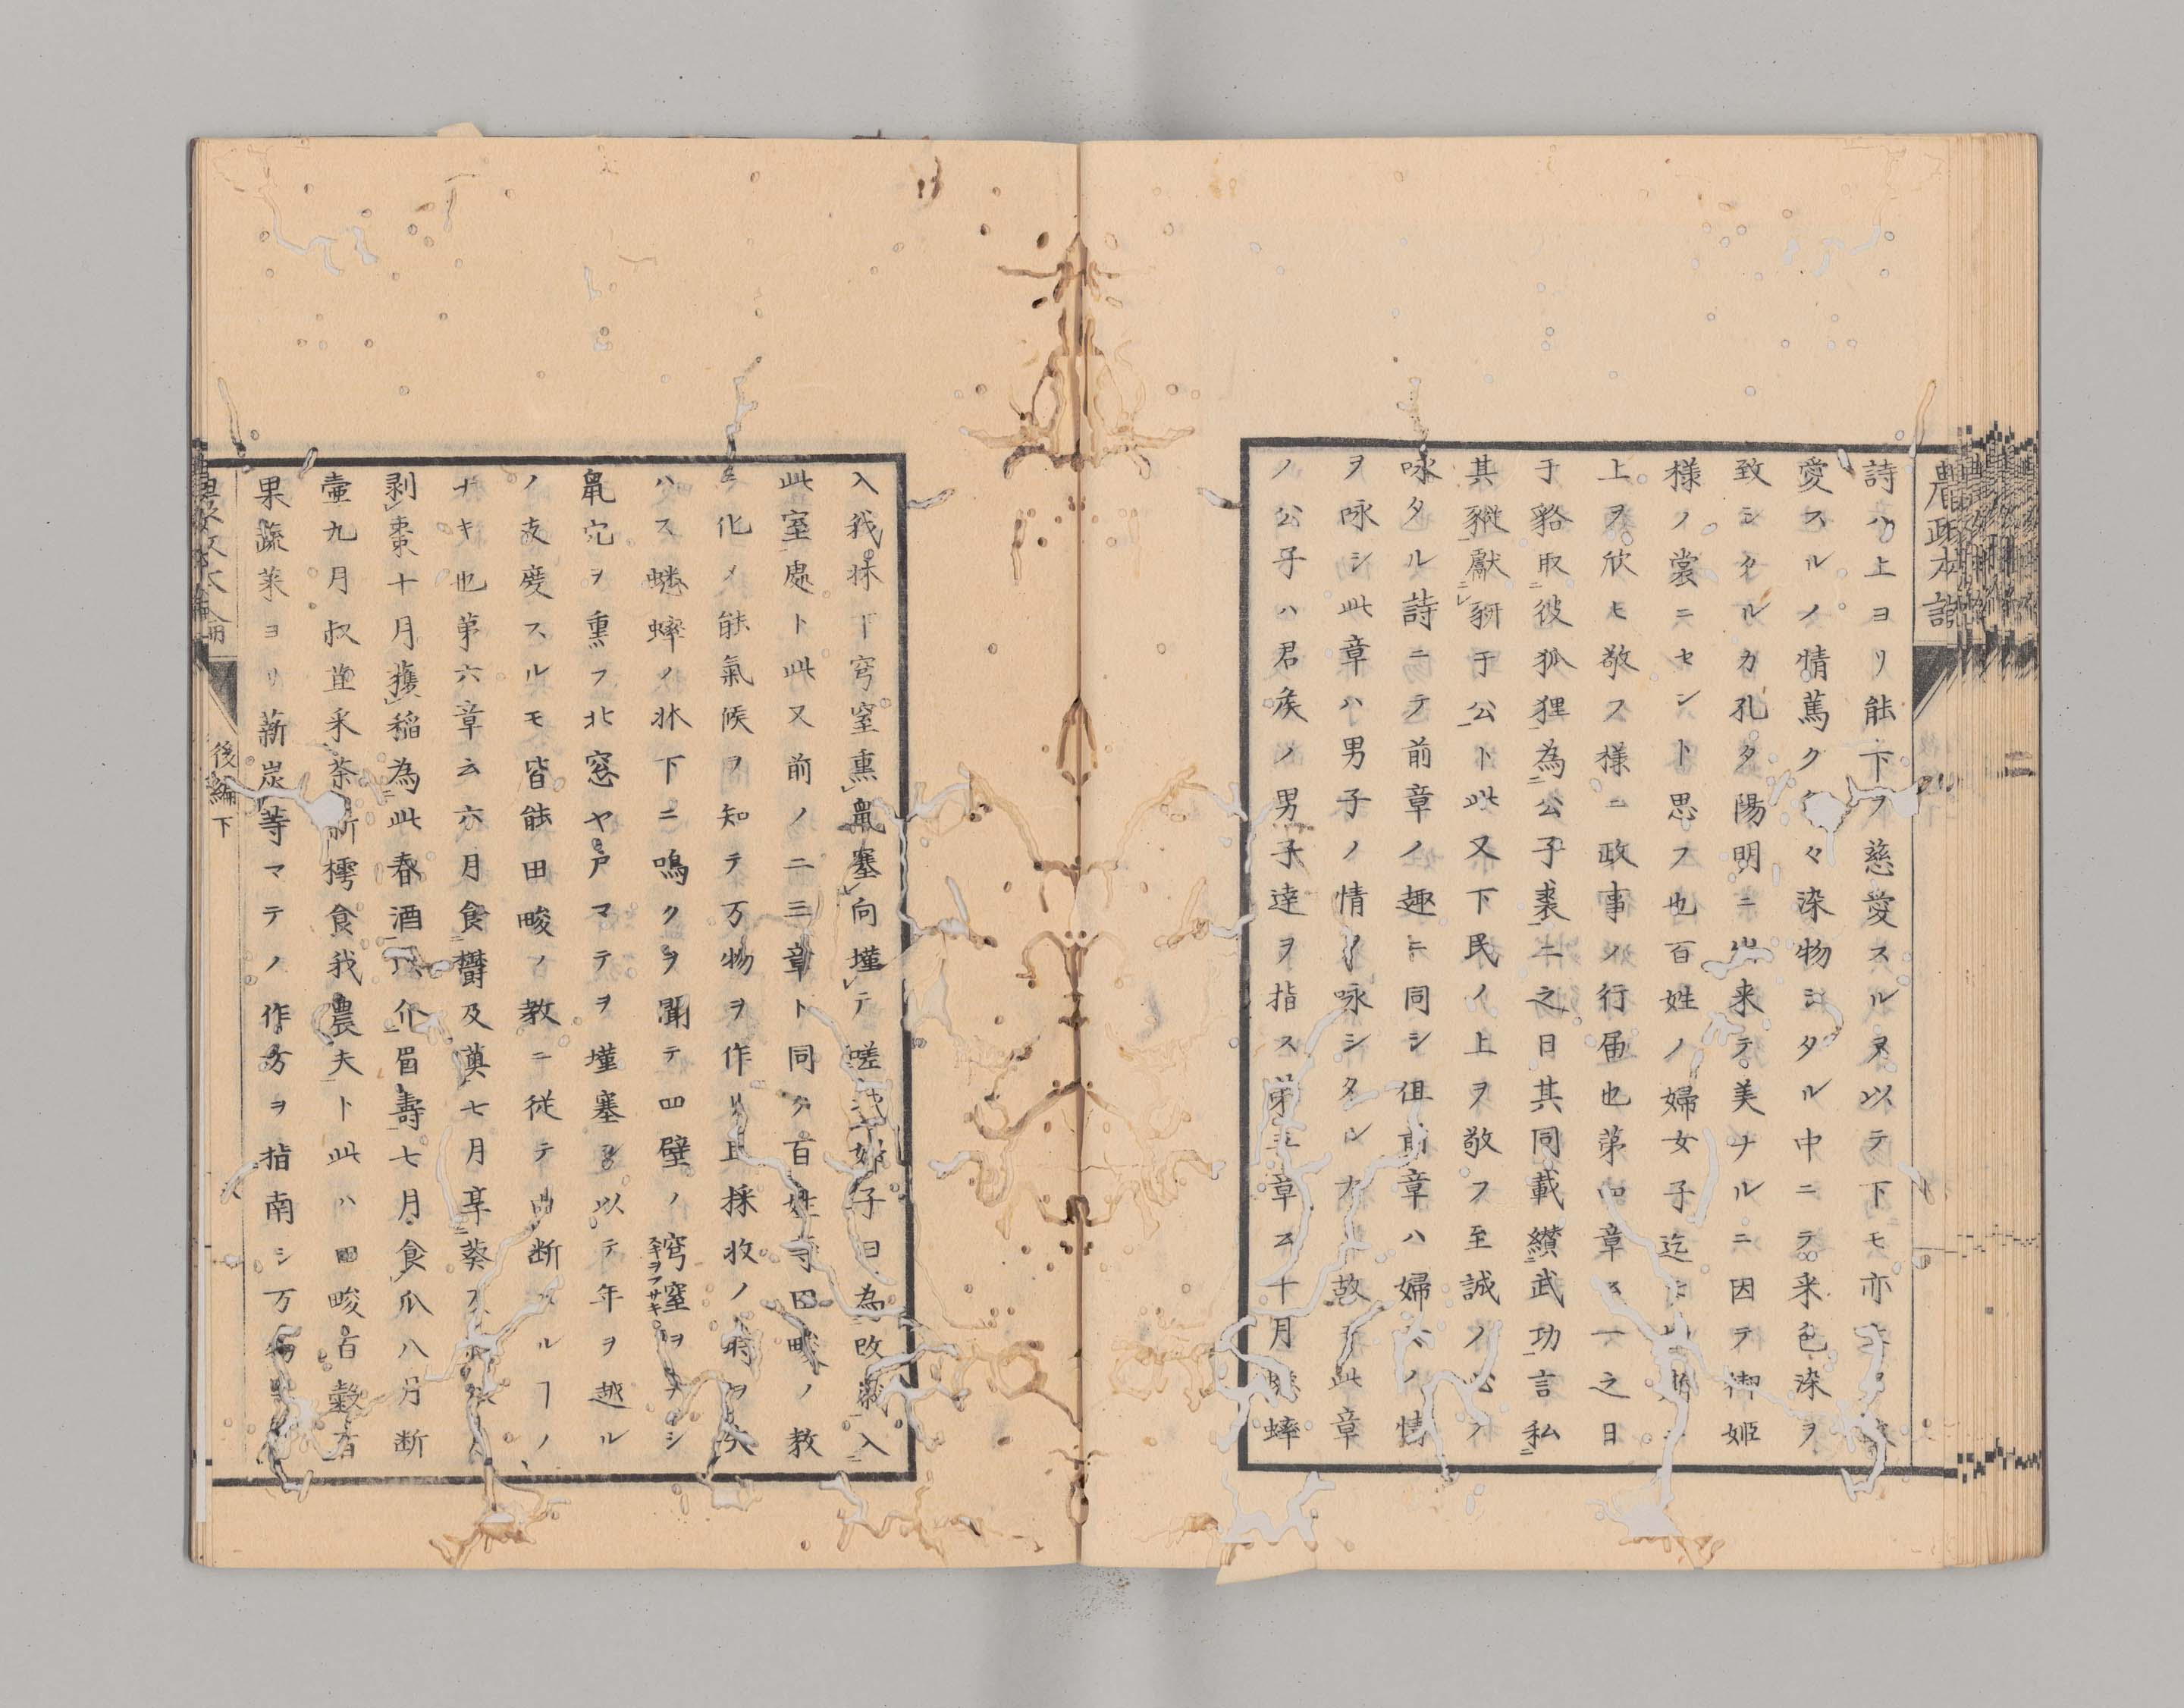 農政本論
詩ハ上ヨリ能下ヲ慈愛スルヲ以テ下モ亦
愛スルノ情篤ク々染物シタル中ニテ来色染ヲ
致シタルカ孔タ陽明ニ出来テ美ナルニ因テ御姫
様ノ裳ニセシト思フ也百姓ノ婦女子迄
上ヲ欣ヒ敬フ様ニ政事ノ行届也第四章云一之日
于貉取彼狐狸為公子裘二之日其同載纘武功言私
其豵獻豜于公ト此又下民ノ上ヲ敬フ至誠ノ心ヲ
咏タル詩ニテ前章ノ趣ニ同シ但前章ハ婦女ノ情
ヲ咏シ此章ハ男子ノ情ヲ咏シタル故此章
ノ公子ハ君矦ノ男子達ヲ指ス第五章云十月蟋蟀
入我牀下穹窒熏鼠塞向墐テ嗟我婦子曰為改歳入
此室處ト此又前ノ二三章ト同ク百姓等田畯ノ教
ニ化メ能氣候ヲ知テ万物ヲ作リ且採收ノ時ヲ失
ハス蟋蟀ノ牀下ニ鳴クヲ聞テ四壁ノ穹窒ヲナシ
スキヲフサキ
鼠穴ヲ熏フ北窓ヤ戸マテヲ墐塞以テ年ヲ越ル
ノ支度スルモ皆能田畯ノ教ニ従テ由断スルヿノ
ナキ也第六章云六月食欝及薁七月亨葵
剥棗十月獲稲為此春酒以介眉壽七月食瓜八月断
壷九月叔苴采荼薪樗食我農夫ト此ハ田畯百穀百
果蔬菜ヨリ薪炭等マテノ作方ヲ指南シ万
後編下